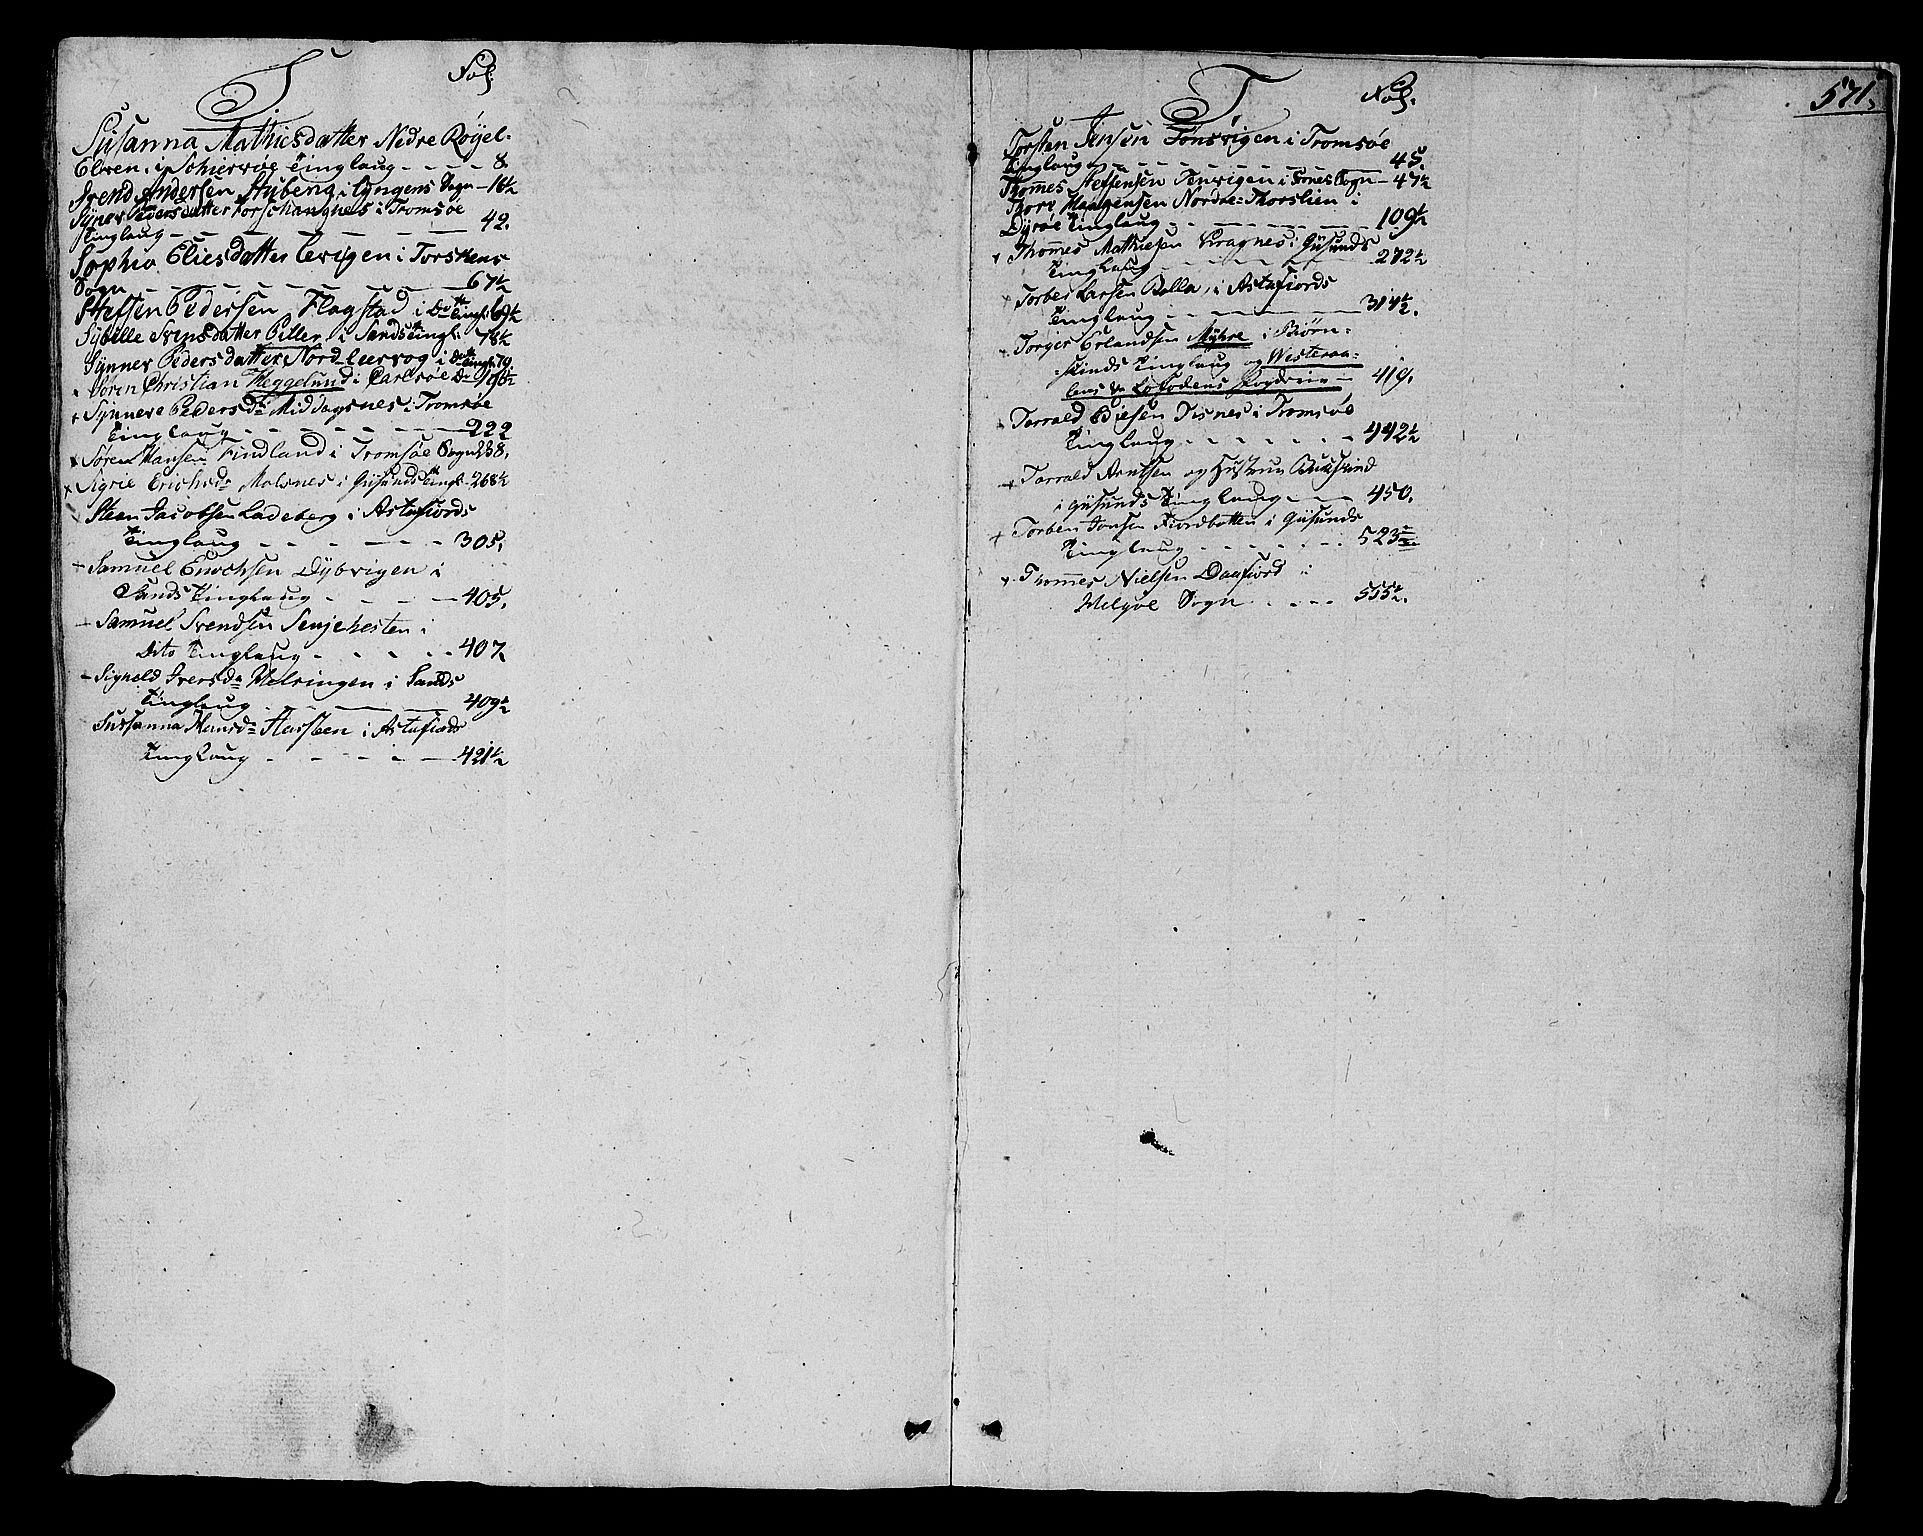 S Fol.
Susanna Mathisdatter Nedre Røyel-
Elven i Schiervøe Tinglaug - - - - 8.
Svend Andersen Stuberg i Lyngens Sogn - 16½
Synev Pedersdatter Torschangnes i Tromsøe
Tinglaug - - - - - - 42.
Sophia Eliesdatter Levigen i Torskens
Sogn - - - - - - 67½
Steffen Pedersen Flagstad i Do Tingl. 69½
Sybille Svensdatter Piller i Sands Tingl. 78½
Synnev Pedersdatter Nord-Leervog i Dito Tingl. 79.
Søren Christian Heggelund i Carlsøe Do 186½
+ Synneve Pedersdr Middagsnes i Tromsøe
Tinglaug - - - - - - 222
x Søren Hansen Findland i Tromsøe Sogn 238,
x Sigrie Erichsdr Molsnes i Giisunds Tingl. 268½
Steen Jacobsen Ladeberg i Astafiords
Tinglaug - - - - - - 305,
+ Samuel Enochsen Dybvigen i
Sands Tinglaug - - - - 405,
+ Samuel Svendsen Senjehesten i
Dito Tinglaug - - - - - 407
+ Signeld Iversdr Melvingen i Sands
Tinglaug - - - - - 409½
Susanna Hansdr Harsteen i Astafiords
Tinglaug - - - - - 421½
T Fol.
571,
Torsten Jensen Tønsvigen i Tromsøe
Tinglaug - - - - - - 45.
Thomes Steffensen Tenvigen i Trones Sogn - 47½
Thore Haagensen Nordre-Thorslien i
Dyrøe Tinglaug - - - - - - 109½
+ Thomes Mathiesen Kragnes i Giisunds
Tinglaug - - - - - - 272½
+ Torber Larsen Bolla, i Astafiords
Tinglaug - - - - - - 314½.
+ Torger Erlandsen Myhre i Biørn-
skinds Tinglaug og Westeraa-
lens & Lofodens Fogderie - 419.
+ Torrald Ediesen Disnes i Tromsøe
Tinglaug - - - - - - 442½
+ Torrald Arntsen og Hustrue Bukskind
i Giisunds Tinglaug - - - 450.
+ Torben Jonsen Fiordbotten i Giisunds
Tinglaug - - - - - - 523½
+ Thomes Nielsen Daafiord i
Helgøe Sogn - - - - 555½.